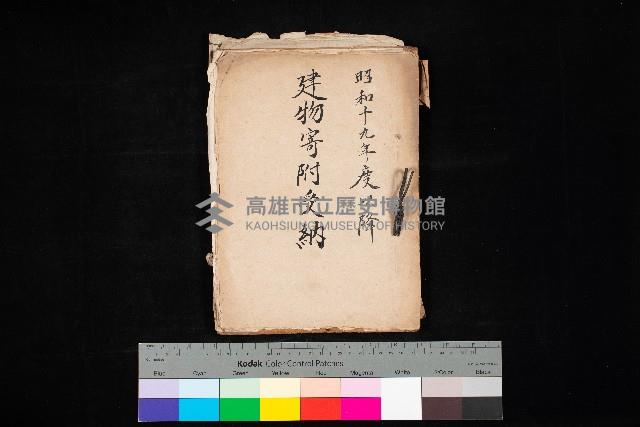 昭和十九年度以降
建物寄附受納
高雄市立歷史博物館
KAOHSIUNG MUSEUM OF HISTORY
Kodak Color Control Patches
Blue Cyan Green Yellow Red Magenta White 3/Color Black